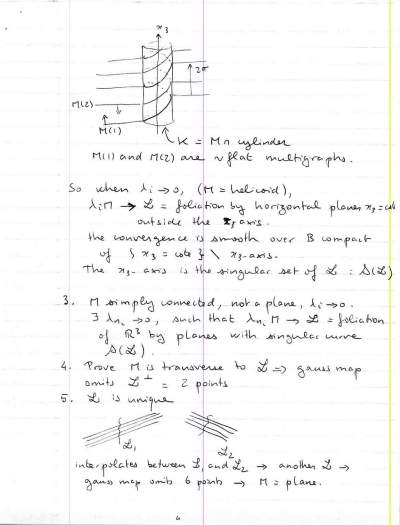 x₃
2π
M(2)
M(1)
K = M ∩ cylinder
M(1) and M(2) are ~ flat multigraphs.
So when λi → 0, (M = helicoid),
λi M → L = foliation by horizontal planes x₃ = cste
outside the x₃ axis.
the convergence is smooth over B compact
of { x₃ = cste } \ x₃-axis.
The x₃-axis is the singular set of L : S(L).
3. M simply connected, not a plane, λi → 0.
∃ λni → 0, such that λni M → L = foliation
of ℝ³ by planes with singular curve
S(L).
4. Prove M is transverse to L ⇒ gauss map
omits L⊥ = 2 points
5. L is unique
L₁
L₂
interpolates between L₁ and L₂ → another L →
gauss map omits 6 points → M = plane.